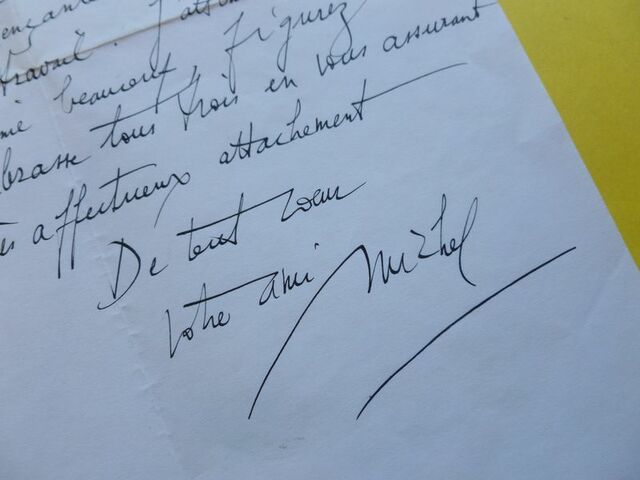 travail. J'atten
beaucoup, figurez
brasse tous trois en vous assurant
affectueux attachement
De tout coeur
Votre ami Michel